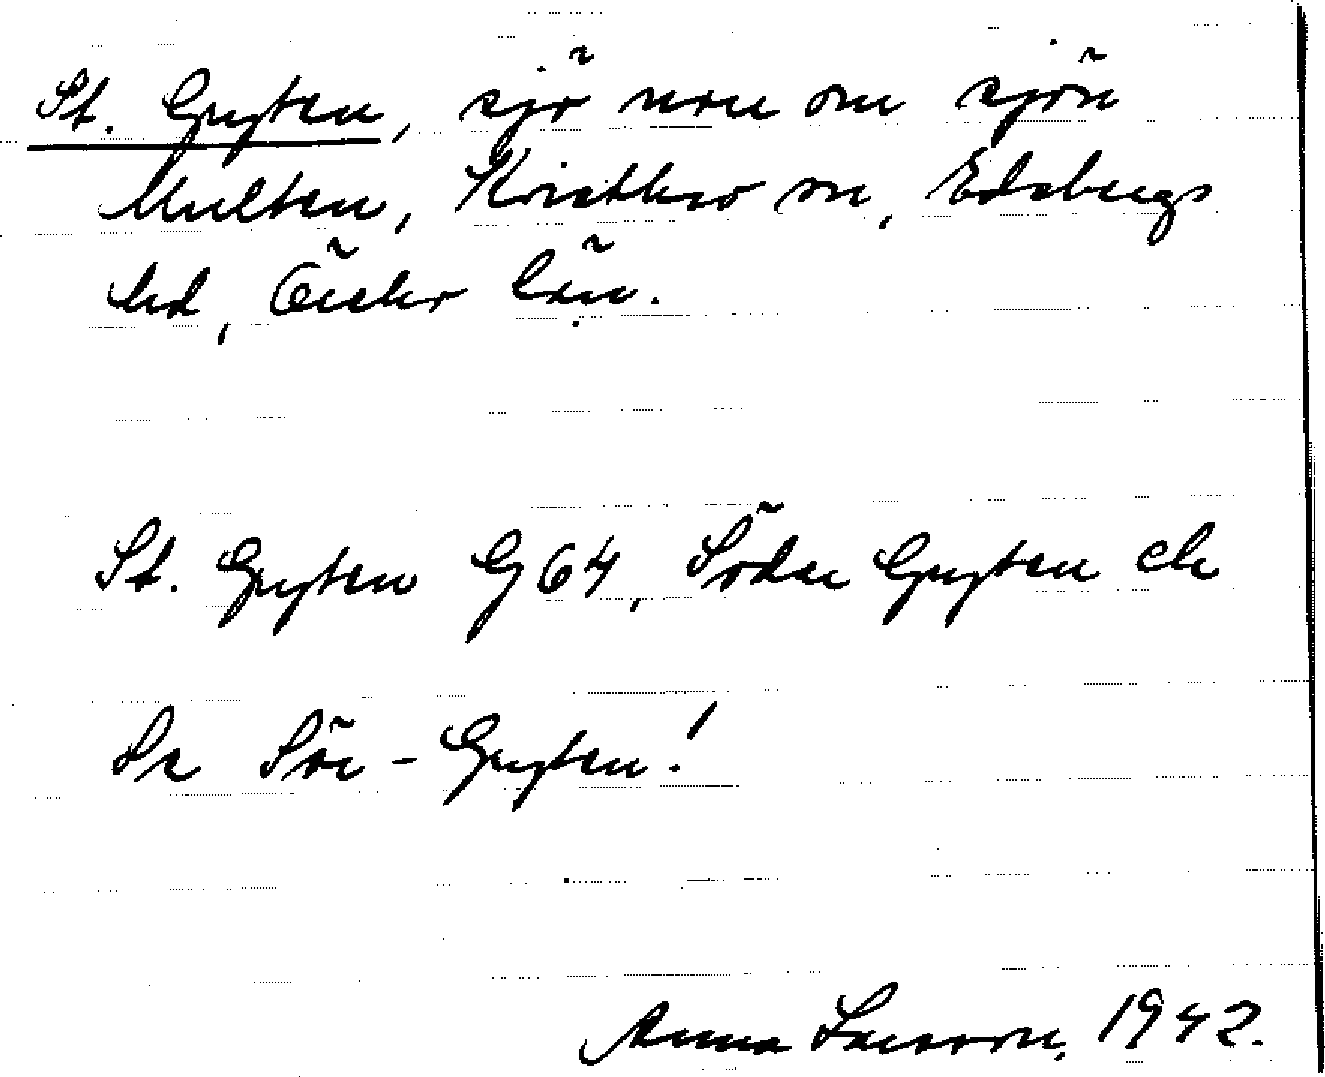 St. Gryten, sjö norr om sjön
Multen, Kvistbro sn, Edsbergs
hd, Örebr län.
St. Gryten G64, Södra Gryten ek
Se Sör-Gryten!
Anna Larsson, 1942.